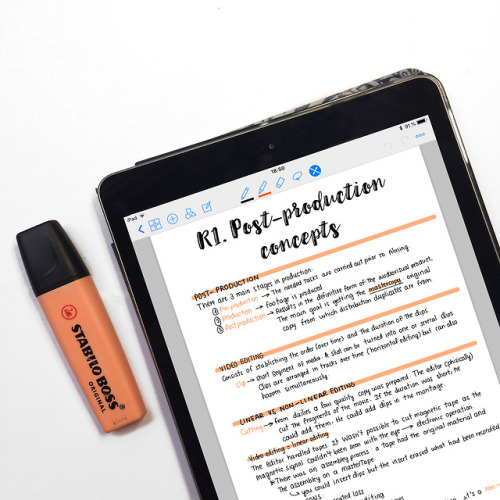 iPad
18:50
91 %
R1. Post-production
concepts
POST-PRODUCTION
There are 3 main stages in production.
① Pre-production → The needed tasks are carried out prior to filming
② Production → Footage is produced
③ Post production → Results in the definitive form of the audiovisual product.
The main goal is getting the mastercopy: original
copy from which distribution duplicates are from
VIDEO EDITING
Consists of stablishing the order (over time) and the duration of the clips.
Clip → short segment of media. A shot can be turned into one or several clips
Clips are arranged in tracks over time (horizontal editing) but can also
happen simultaneously.
LINEAR VS NON-LINEAR EDITING
Cutting → From dailies a low quality copy was prepared. The editor (physically)
cut the fragments of the movie. If the duration was short, he
could add them. He could add dips in the montage
Video editing = linear editing
The editor handled tapes. It wasn't possible to cut magnetic tape as the
magnetic signal couldn't been seen with the eye → electronic operation
There was an assembly process: a tape had the original material and
the assembly on a mastertape.
you could insert clips but the insert erased what had been recorded
loss
editing
STABILO BOSS
ORIGINAL